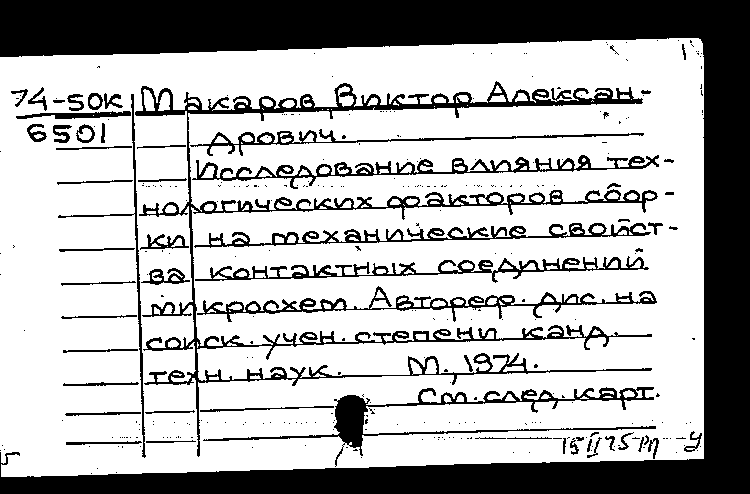 74-50К Макаров, Виктор Алексан-
6501 дрович.
Исследование влияния тех-
нологических факторов сбор-
ки на механические свойст-
ва контактных соединений
микросхем. Автореф. дис. на
соиск. учен. степени канд.
техн. наук. М., 1974.
См. след. карт.
15 II 75 рп У